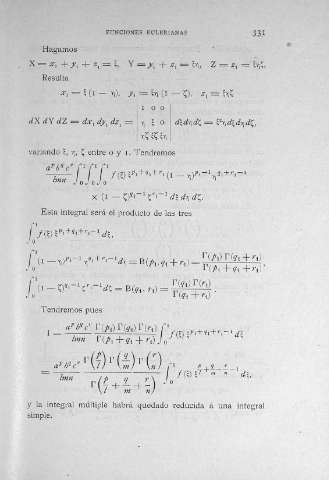 FUNCIONES EULERIANAS 331
Hagamos
X = x₁ + y₁ + z₁ = ξ, Y = y₁ + z₁ = ξη, Z = z₁ = ξηζ.
Resulta
x₁ = ξ (1 — η), y₁ = ξη (1 — ζ), z₁ = ξηζ
1 0 0
dX dY dZ = dx₁ dy₁ dz₁ = | η ξ 0 | dξ dη dζ = ξ²η dξ dη dζ,
ηζ ξζ ξη
variando ξ, η, ζ entre 0 y 1. Tendremos
a^p b^q c^r / lmn ∫₀¹ ∫₀¹ ∫₀¹ f(ξ) ξ^{p₁+q₁+r₁−1} (1 — η)^{p₁−1} η^{q₁+r₁−1}
× (1 — ζ)^{q₁−1} ζ^{r₁−1} dξ dη dζ.
Esta integral será el producto de las tres
∫₀¹ f(ξ) ξ^{p₁+q₁+r₁−1} dξ,
∫₀¹ (1 — η)^{p₁−1} η^{q₁+r₁−1} dη = B(p₁, q₁ + r₁) = Γ(p₁) Γ(q₁ + r₁) / Γ(p₁ + q₁ + r₁),
∫₀¹ (1 — ζ)^{q₁−1} ζ^{r₁−1} dζ = B(q₁, r₁) = Γ(q₁) Γ(r₁) / Γ(q₁ + r₁).
Tendremos pues
I = a^p b^q c^r / lmn Γ(p₁) Γ(q₁) Γ(r₁) / Γ(p₁ + q₁ + r₁) ∫₀¹ f(ξ) ξ^{p₁+q₁+r₁−1} dξ
= a^p b^q c^r / lmn Γ(p/l) Γ(q/m) Γ(r/n) / Γ(p/l + q/m + r/n) ∫₀¹ f(ξ) ξ^{p/l + q/m + r/n − 1} dξ,
y la integral múltiple habrá quedado reducida á una integral
simple.